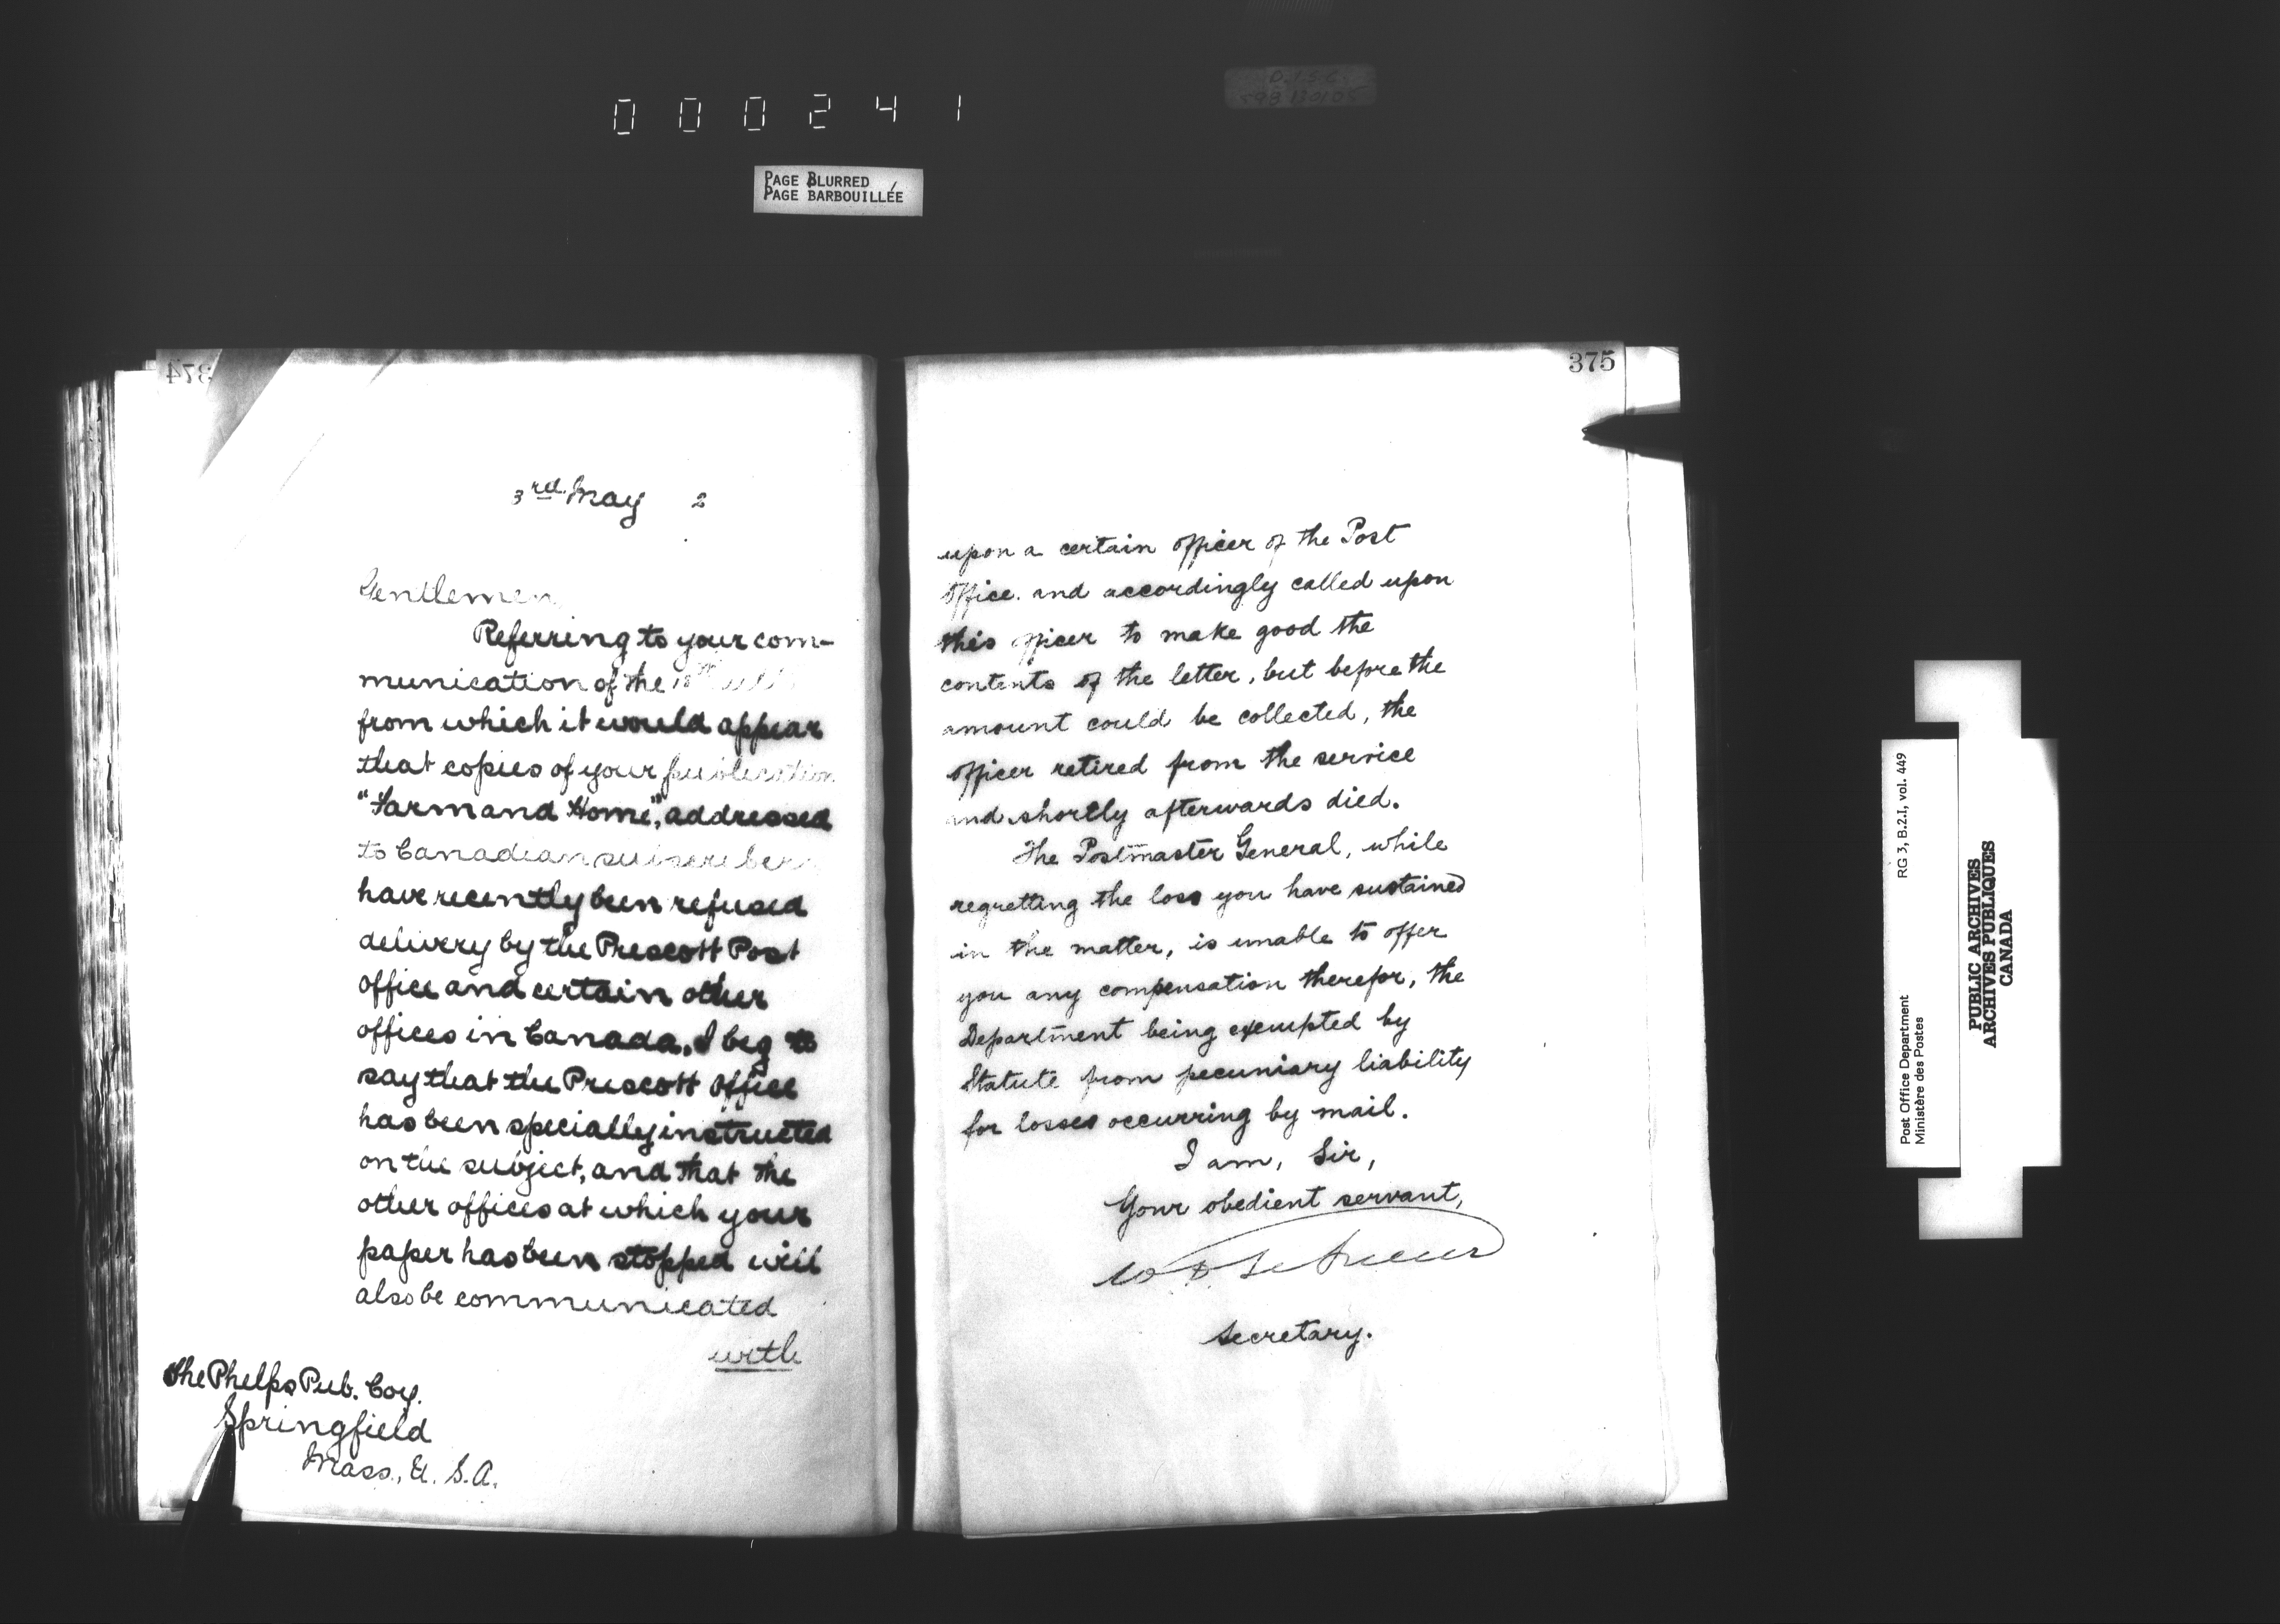 000241
PAGE BLURRED
PAGE BARBOUILLÉE
374
3rd May 2
Gentlemen
Referring to your com-
munication of the
from which it would appear
that copies of your publication
"Farm and Home", addressed
to Canadian subscribers
have recently been refused
delivery by the Prescott Post
Office and certain other
offices in Canada, I beg to
say that the Prescott Office
has been specially instructed
on the subject, and that the
other offices at which your
paper has been stopped will
also be communicated
with
The Phelps Pub. Coy.
Springfield
Mass., U. S. A.
375
upon a certain officer of the Post
Office. and accordingly called upon
this officer to make good the
contents of the letter, but before the
amount could be collected, the
officer retired from the service
and shortly afterwards died.
The Postmaster General, while
regretting the loss you have sustained
in the matter, is unable to offer
you any compensation therefor, the
Department being exempted by
Statute from pecuniary liability
for losses occurring by mail.
I am, Sir,
Your obedient servant,
Secretary.
RG 3, B.2.I, vol. 449
Post Office Department
Ministère des Postes
PUBLIC ARCHIVES
ARCHIVES PUBLIQUES
CANADA